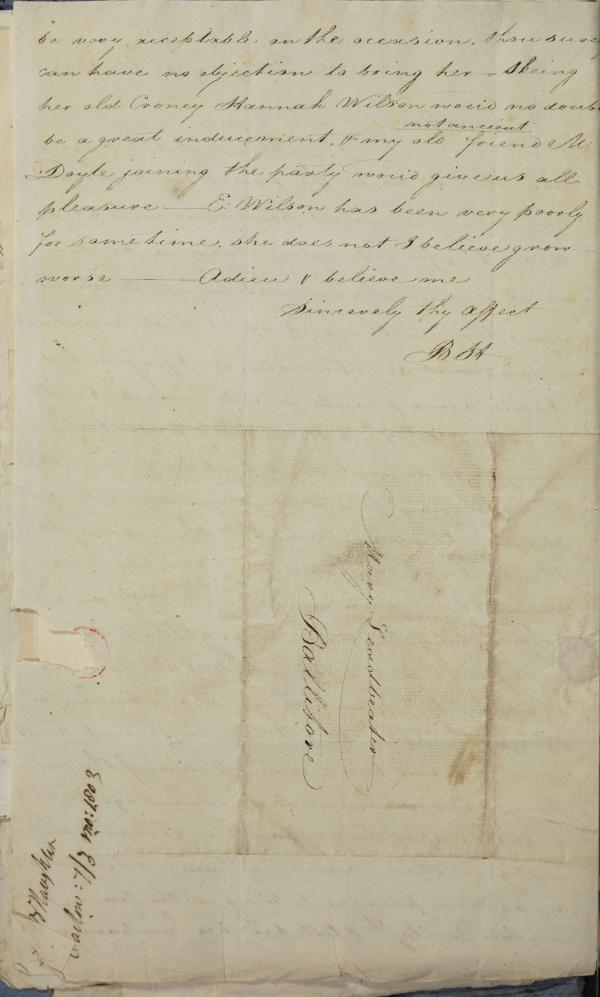 be very acceptable on the occasion, thou surely
can have no objection to bring her - Seeing
her old Croney Hannah Wilson would no doubt
be a great inducement, & my old friend M:
not ancient
Doyle joining the party would give us all
pleasure — E: Wilson has been very poorly
for some time, she does not I believe grow
worse — Adieu & believe me
Sincerely thy affect
Mary Leadbeater
Ballitore